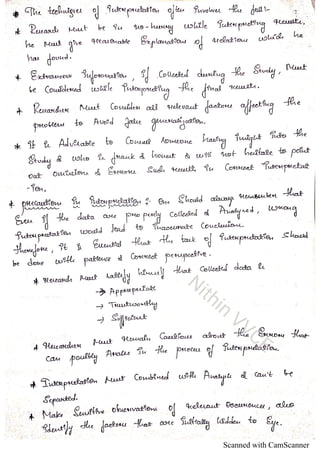 * The techniques of Interpretation often Involves the foll:-
* Research Must be in no-hurry while Interpreting Results,
he Must give reasonable Explanations of relation which he
has found.
* Extraneous Information, If Collected during the Study, Must
be Considered while Interpreting the final results.
* Researcher Must Consider all relevant factors affecting the
problem to Avoid false generalization.
* It is Advisable to Consult Someone having Insight Into the
Study & who is frank & honest & will not hesitate to point
out Omissions & Errors Such results In Correct Interpretat
-ion.
* precautions In Interpretation : One Should always remember that
Even If the data are properly Collected & Analysed, wrong
Interpretation would lead to Inaccurate Conclusions.
therefore, It is Essential that the task of Interpretation Should
be done with patience & Correct perspective.
* Research Must satisfy himself that Collected data is
→ Appropriate
→ Trustworthy
→ Sufficient
* Researcher Must Remain Cautious about the Errors that
Can possibly Arise In the process of Interpretation.
* Interpretation Must Combined with Analysis & Can't be
Separated.
* Make Sensitive Observations of relevant Occurrence, also
Identify the factors that are Initially hidden to Eye.
Scanned with CamScanner